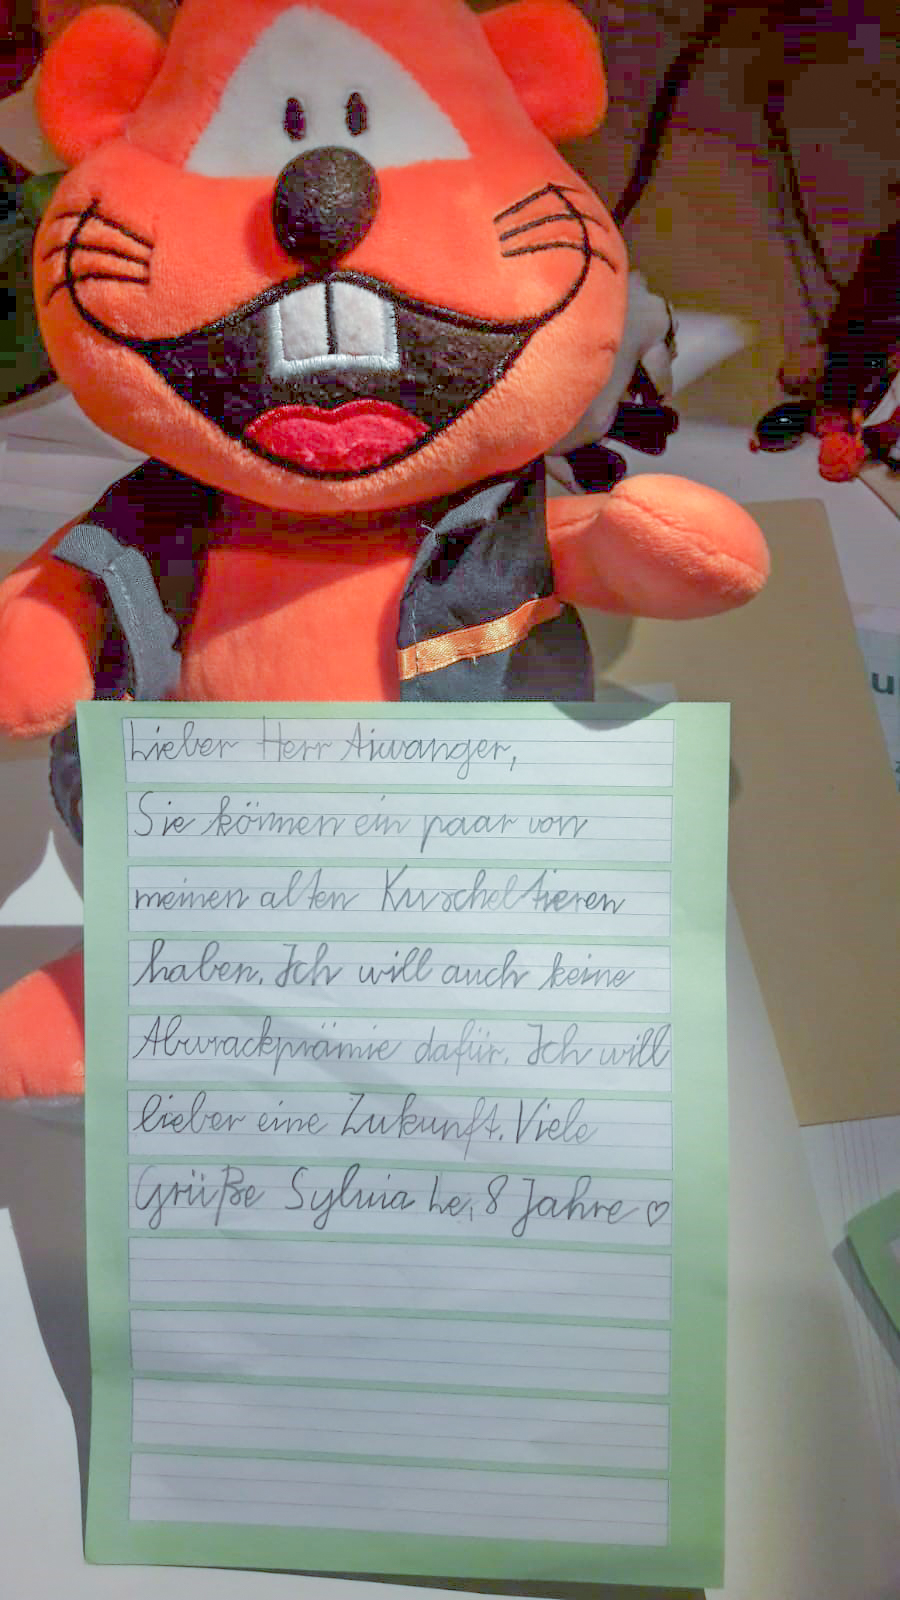 Lieber Herr Aiwanger,
Sie können ein paar von
meinen alten Kuscheltieren
haben. Ich will auch keine
Abwrackprämie dafür. Ich will
lieber eine Zukunft. Viele
Grüße Sylvia Le, 8 Jahre ♡
u